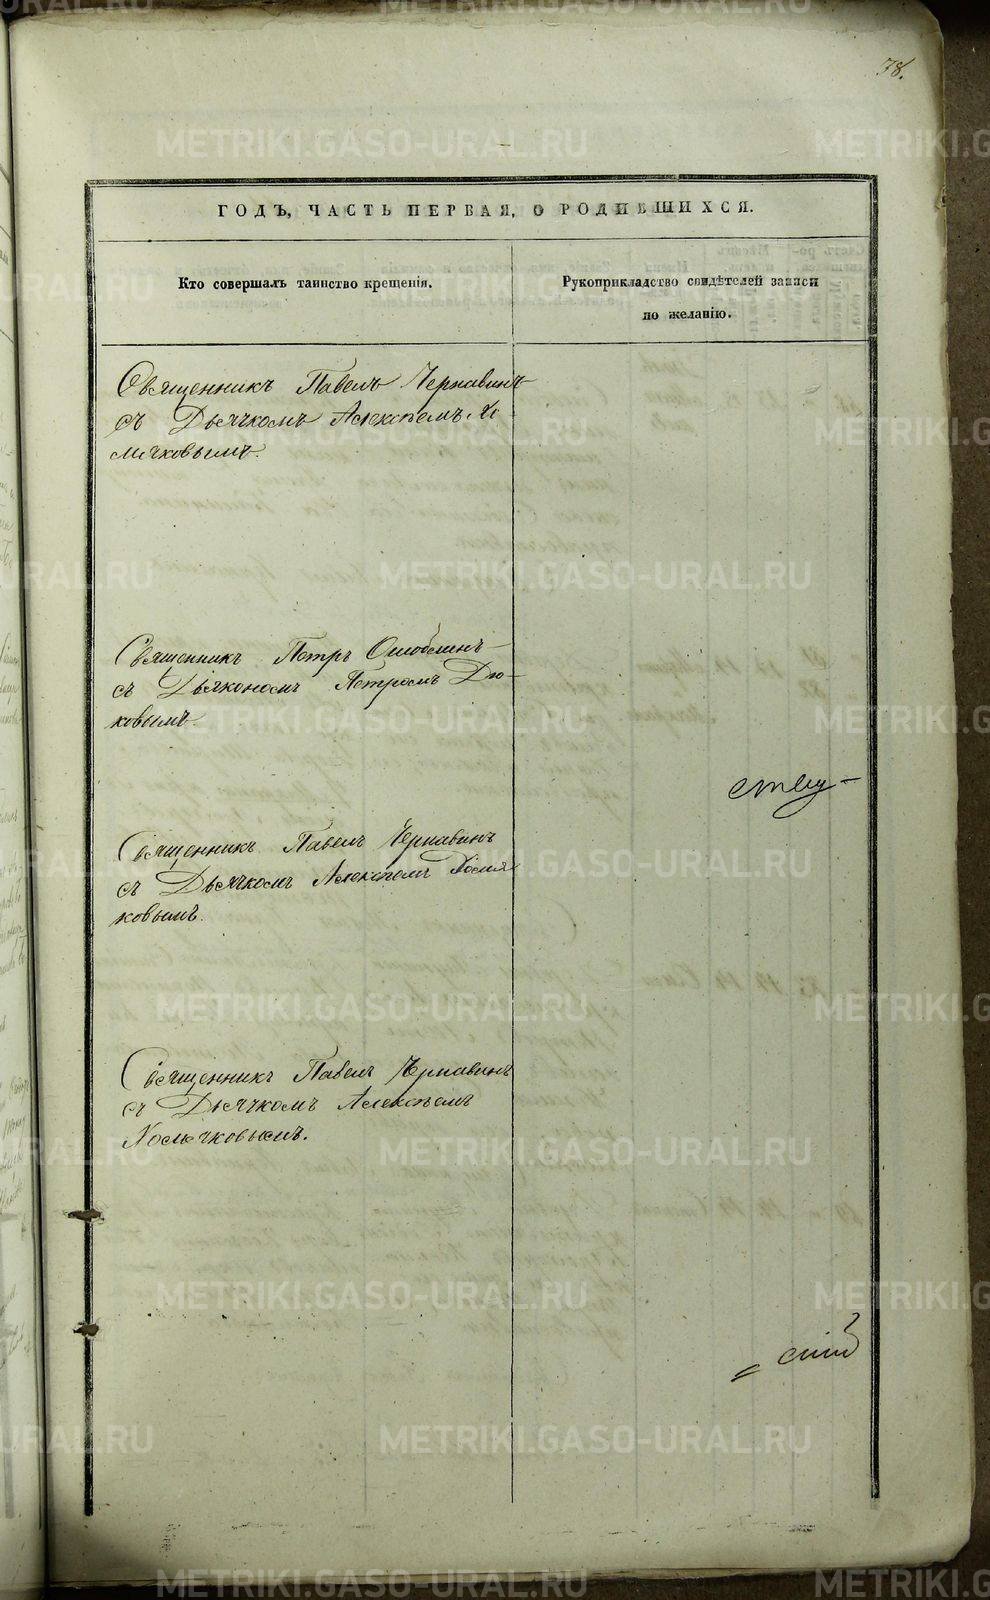 38.
ГОДЪ, ЧАСТЬ ПЕРВАЯ, О РОДИВШИХСЯ.
Кто совершалъ таинство крещенія.
Рукоприкладство свидѣтелей записи
по желанію.
Священникъ Павелъ Чернавинъ
съ Дьячкомъ Алексѣемъ Хо
мячковымъ.
Священникъ Петръ Оглоблинъ
съ Дьякономъ Петромъ Дю-
ковымъ.
Священникъ Павелъ Чернавинъ
съ Дьячкомъ Алексѣемъ Хомяч
ковымъ.
Священникъ Павелъ Чернавинъ
съ Дьячкомъ Алексѣемъ
Хомячковымъ.
METRIKI.GASO-URAL.RU